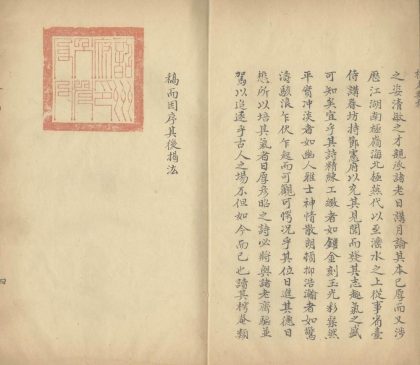 之姿清敏之才親承諸老日講月論其本已厚而又涉
歷江湖南極嶺海北極燕代以至灤水之上從事省臺
侍講春坊持節憲府以充其見聞而發其志趣氣之盛
可知矣宜乎其詩精練工緻者如鏤金刻玉光彩粲然
平實冲淡者如幽人雅士神情散朗頓抑浩瀚者如驚
濤駭浪乍伏乍起而可觀可愕況乎其位日進其德日
懋所以培其氣者日厚彥昭之詩必將與諸老齊驅並
駕以追逮乎古人之場不但如今而已也讀其樗菴類
稿而因序其後揭法
四